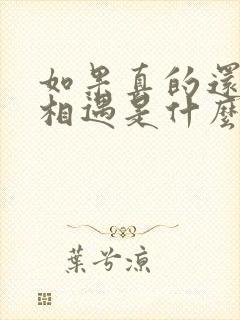 如果真的還
相遇是什麼
葉兮涼